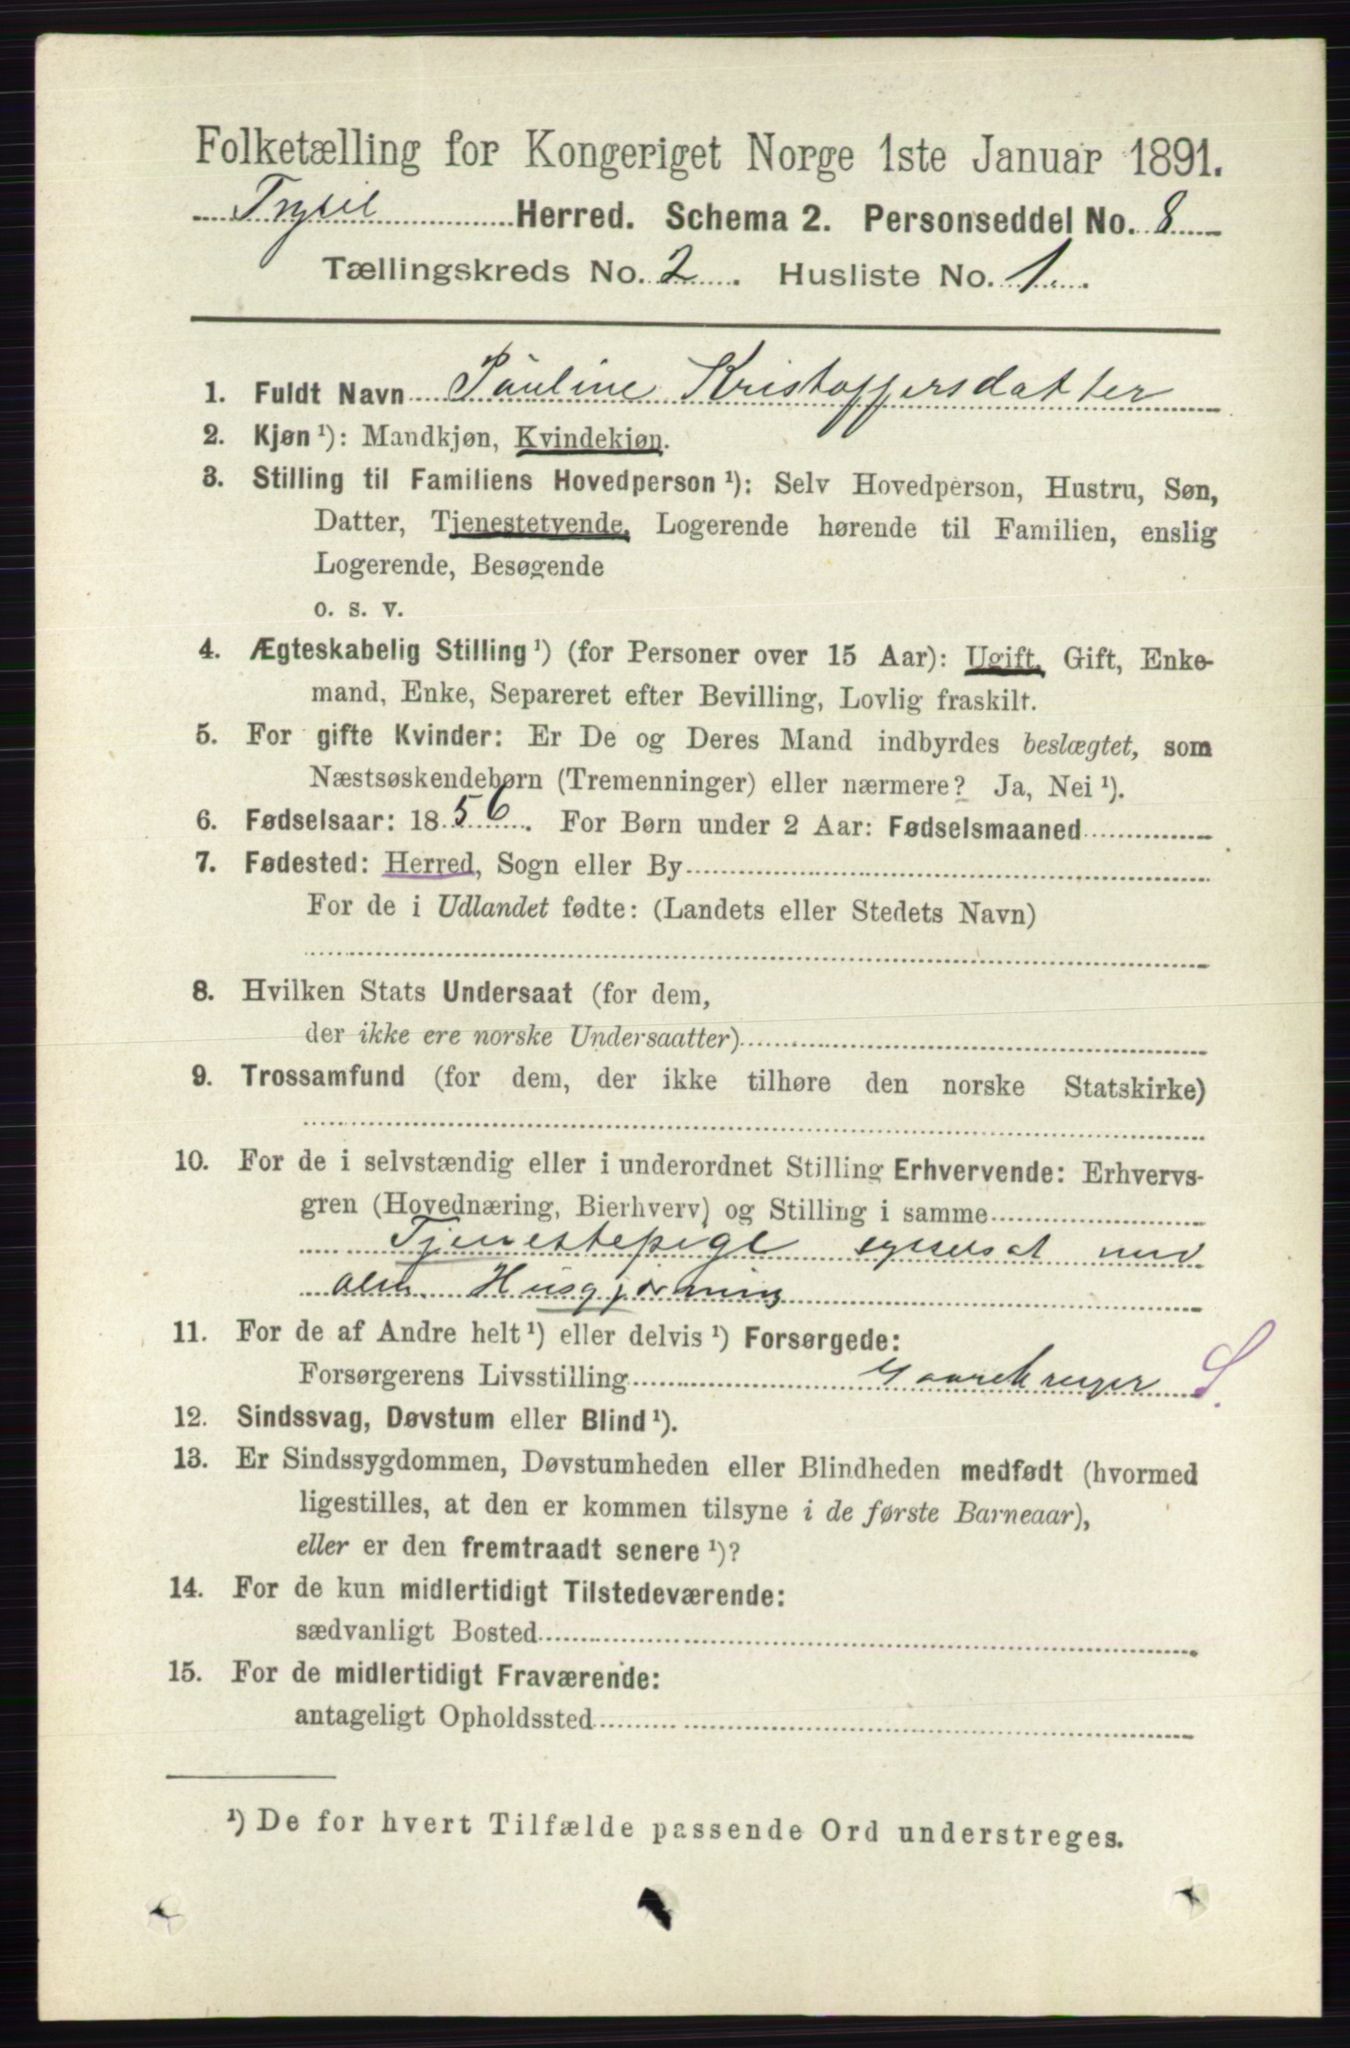 Folketælling for Kongeriget Norge 1ste Januar 1891.
Trysil Herred. Schema 2. Personseddel No. 8
Tællingskreds No. 2. Husliste No. 1.
1. Fuldt Navn Pauline Kristoffersdatter
2. Kjøn ¹): Mandkjøn, Kvindekjøn.
3. Stilling til Familiens Hovedperson ¹): Selv Hovedperson, Hustru, Søn,
Datter, Tjenestetyende, Logerende hørende til Familien, enslig
Logerende, Besøgende
o. s. v.
4. Ægteskabelig Stilling ¹) (for Personer over 15 Aar): Ugift, Gift, Enke-
mand, Enke, Separeret efter Bevilling, Lovlig fraskilt.
5. For gifte Kvinder: Er De og Deres Mand indbyrdes beslægtet, som
Næstsøskendebørn (Tremenninger) eller nærmere? Ja, Nei ¹).
6. Fødselsaar: 1856. For Børn under 2 Aar: Fødselsmaaned
7. Fødested: Herred, Sogn eller By
For de i Udlandet fødte: (Landets eller Stedets Navn)
8. Hvilken Stats Undersaat (for dem,
der ikke ere norske Undersaatter)
9. Trossamfund (for dem, der ikke tilhøre den norske Statskirke)
10. For de i selvstændig eller i underordnet Stilling Erhvervende: Erhvervs-
gren (Hovednæring, Bierhverv) og Stilling i samme
Tjenestepige sysselsat med
alm. Husgjerning
11. For de af Andre helt ¹) eller delvis ¹) Forsørgede:
Forsørgerens Livsstilling Gaardbruger S.
12. Sindssvag, Døvstum eller Blind ¹).
13. Er Sindssygdommen, Døvstumheden eller Blindheden medfødt (hvormed
ligestilles, at den er kommen tilsyne i de første Barneaar),
eller er den fremtraadt senere ¹)?
14. For de kun midlertidigt Tilstedeværende:
sædvanligt Bosted
15. For de midlertidigt Fraværende:
antageligt Opholdssted
¹) De for hvert Tilfælde passende Ord understreges.